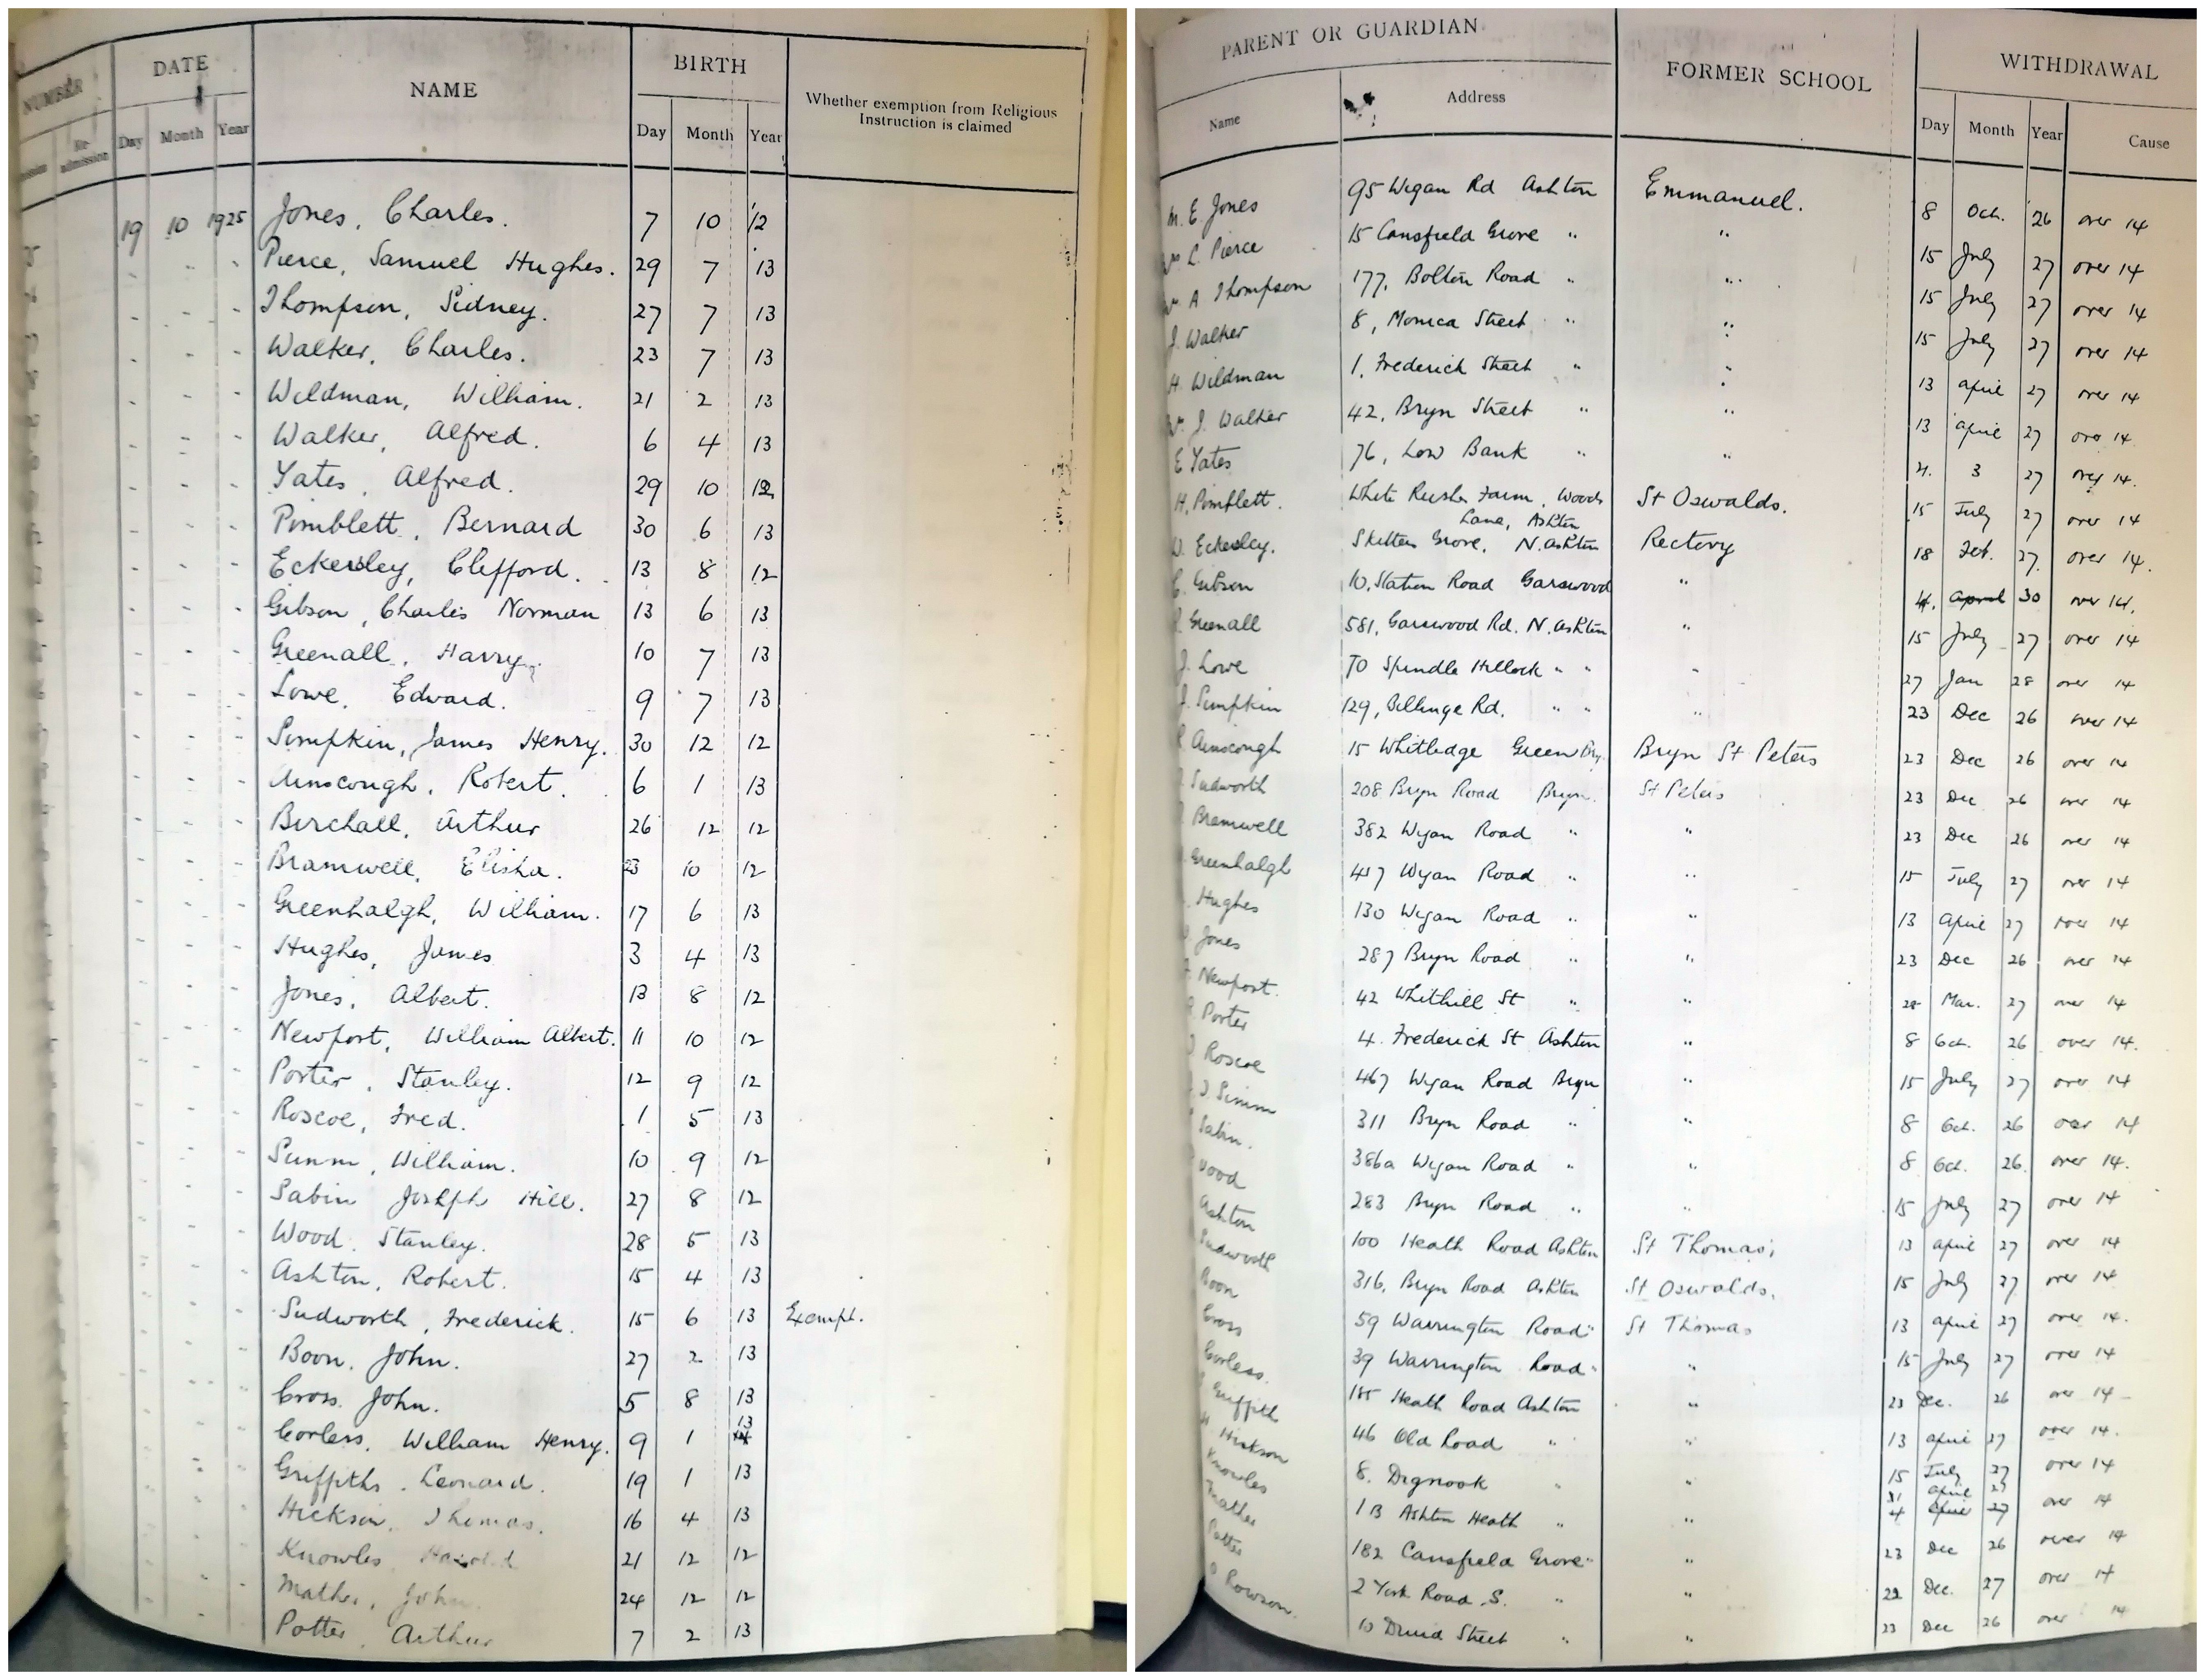 NUMBER
DATE
NAME
BIRTH
Whether exemption from Religious
Instruction is claimed
Re-
admission
Day Month Year
Day Month Year
19 10 1925 Jones, Charles. 7 10 12
" " " Pierce, Samuel Hughes. 29 7 13
" " " Thompson, Sidney. 27 7 13
" " " Walker, Charles. 23 7 13
" " " Wildman, William. 21 2 13
" " " Walker, Alfred. 6 4 13
" " " Yates, Alfred. 29 10 12
" " " Pimblett, Bernard 30 6 13
" " " Eckersley, Clifford. 13 8 12
" " " Gibson, Charles Norman 13 6 13
" " " Greenall, Harry. 10 7 13
" " " Lowe, Edward. 9 7 13
" " " Simpkin, James Henry. 30 12 12
" " " Ainscough, Robert. 6 1 13
" " " Birchall, Arthur 26 12 12
" " " Bramwell, Elisha. 23 10 12
" " " Greenhalgh, William. 17 6 13
" " " Hughes, James 3 4 13
" " " Jones, Albert. 13 8 12
" " " Newport, William Albert. 11 10 12
" " " Porter, Stanley. 12 9 12
" " " Roscoe, Fred. 1 5 13
" " " Simm, William. 10 9 12
" " " Sabin Joseph Hill. 27 8 12
" " " Wood. Stanley. 28 5 13
" " " Ashton, Robert. 15 4 13
" " " Sudworth, Frederick. 15 6 13 Exempt.
" " " Boon, John. 27 2 13
" " " Cross, John. 5 8 13
" " " Corless, William Henry. 9 1 13
" " " Griffiths, Leonard. 19 1 13
" " " Hickson, Thomas. 16 4 13
" " " Knowles, Harold 21 12 12
" " " Mather, John. 24 12 12
" " " Potter, Arthur 7 2 13
PARENT OR GUARDIAN
FORMER SCHOOL
WITHDRAWAL
Name
Address
Day Month Year Cause
M. E. Jones 95 Wigan Rd Ashton Emmanuel. 8 Oct. 26 over 14
L. Pierce 15 Cansfield Grove " " 15 July 27 over 14
A Thompson 177, Bolton Road " " 15 July 27 over 14
J. Walker 8, Monica Street " " 15 July 27 over 14
H. Wildman 1, Frederick Street " " 13 April 27 over 14
J. Walker 42, Bryn Street " " 13 April 27 over 14.
E Yates 76, Low Bank " " 3 27 over 14.
H. Pimblett. White Rushes Farm, Woods St Oswalds. 15 July 27 over 14
Lane, Ashton
Eckersley. Skitters Grove, N. Ashton Rectory 18 Feb. 27. over 14.
C. Gibson 10, Station Road Garswood " 4. April 30 over 14.
Greenall 581, Garswood Rd. N. Ashton " 15 July 27 over 14
J. Lowe 70 Spindle Hillock " " " 27 Jan 28 over 14
J. Simpkin 129, Billinge Rd. " " " 23 Dec 26 over 14
R. Ainscough 15 Whitledge Green Bryn St Peters 23 Dec 26 over 14
Sudworth 208 Bryn Road Bryn. St Peters 23 Dec 26 over 14
Bramwell 382 Wigan Road " " 23 Dec 26 over 14
Greenhalgh 457 Wigan Road " " 15 July 27 over 14
Hughes 130 Wigan Road " " 13 April 27 over 14
Jones 287 Bryn Road " " 23 Dec 26 over 14
Newport. 42 Whithill St " " 28 Mar. 27 over 14
Porter 4. Frederick St Ashton " 8 Oct. 26 over 14.
Roscoe 467 Wigan Road Bryn " 15 July 27 over 14
Simm 311 Bryn Road " " 8 Oct. 26 over 14
Sabin. 386a Wigan Road " " 8 Oct. 26. over 14.
Wood 283 Bryn Road " " 15 July 27 over 14
Ashton 100 Heath Road Ashton St Thomas, 13 April 27 over 14
Sudworth 316, Bryn Road Ashton St Oswalds. 15 July 27 over 14
Boon 59 Warrington Road " St Thomas 13 April 27 over 14.
Cross 39 Warrington Road " " 15 July 27 over 14
Corless. 185 Heath Road Ashton " 23 Dec. 26 over 14
Griffith 46 Old Road " " 13 April 27 over 14.
Hickson 8. Dignook " " 15 July 27 over 14
April 27
Knowles 1B Ashton Heath " " 4 April 27 over 14
Mather 182 Cansfield Grove " " 23 Dec 26 over 14
Potter 2 York Road S. " " 22 Dec. 27 over 14
Rowson. 10 Druid Street " " 23 Dec 26 over 14